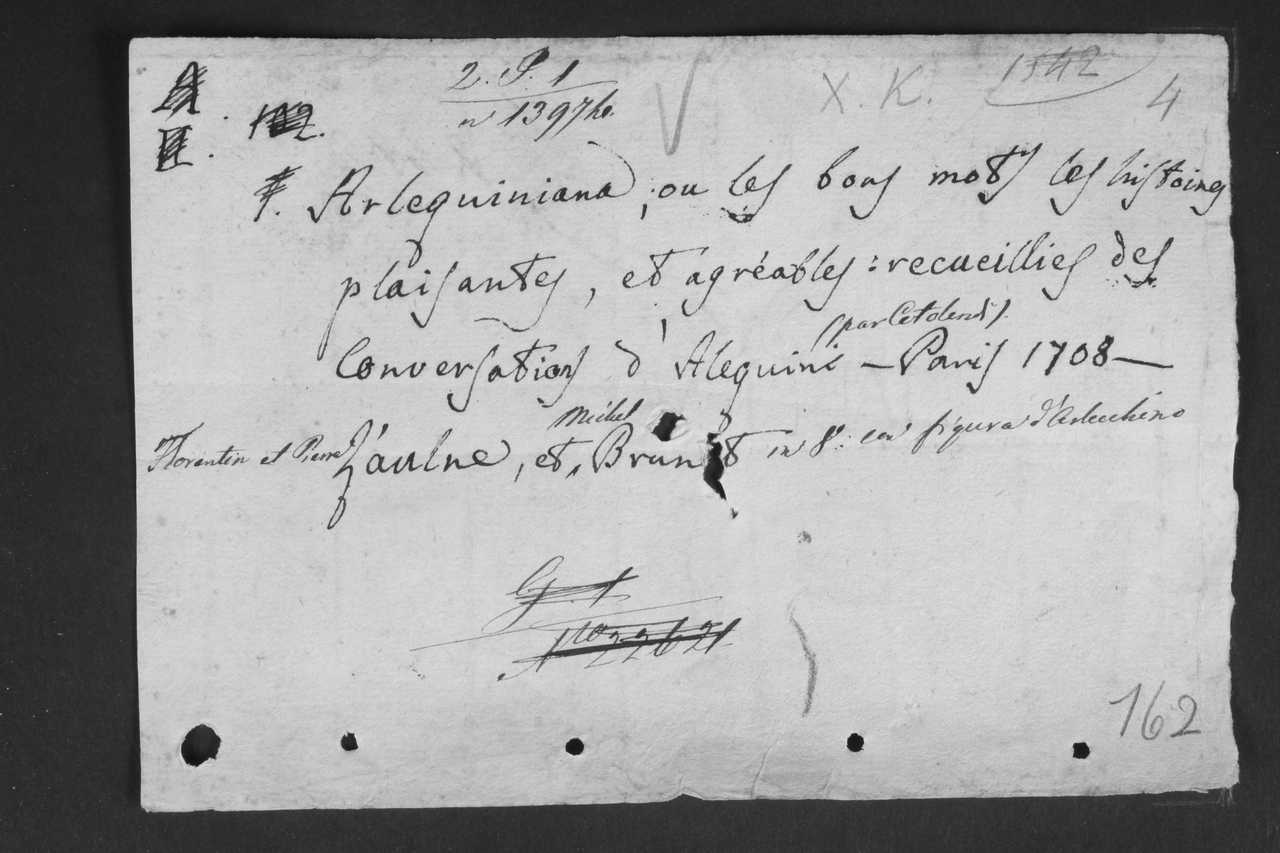 2. P. 1
nº 13971 bo.
X. K.
1542
4
Arlequiniana, ou les bons mots les histoires
plaisantes, et agréables: recueillies des
(par Cotolendi)
Conversations d'Alequini — Paris 1708 —
Michel
Florentin et Pierre Laulne, et Brunet in 8º con figura d'Arlecchino
G. 1
Nro 22621
162